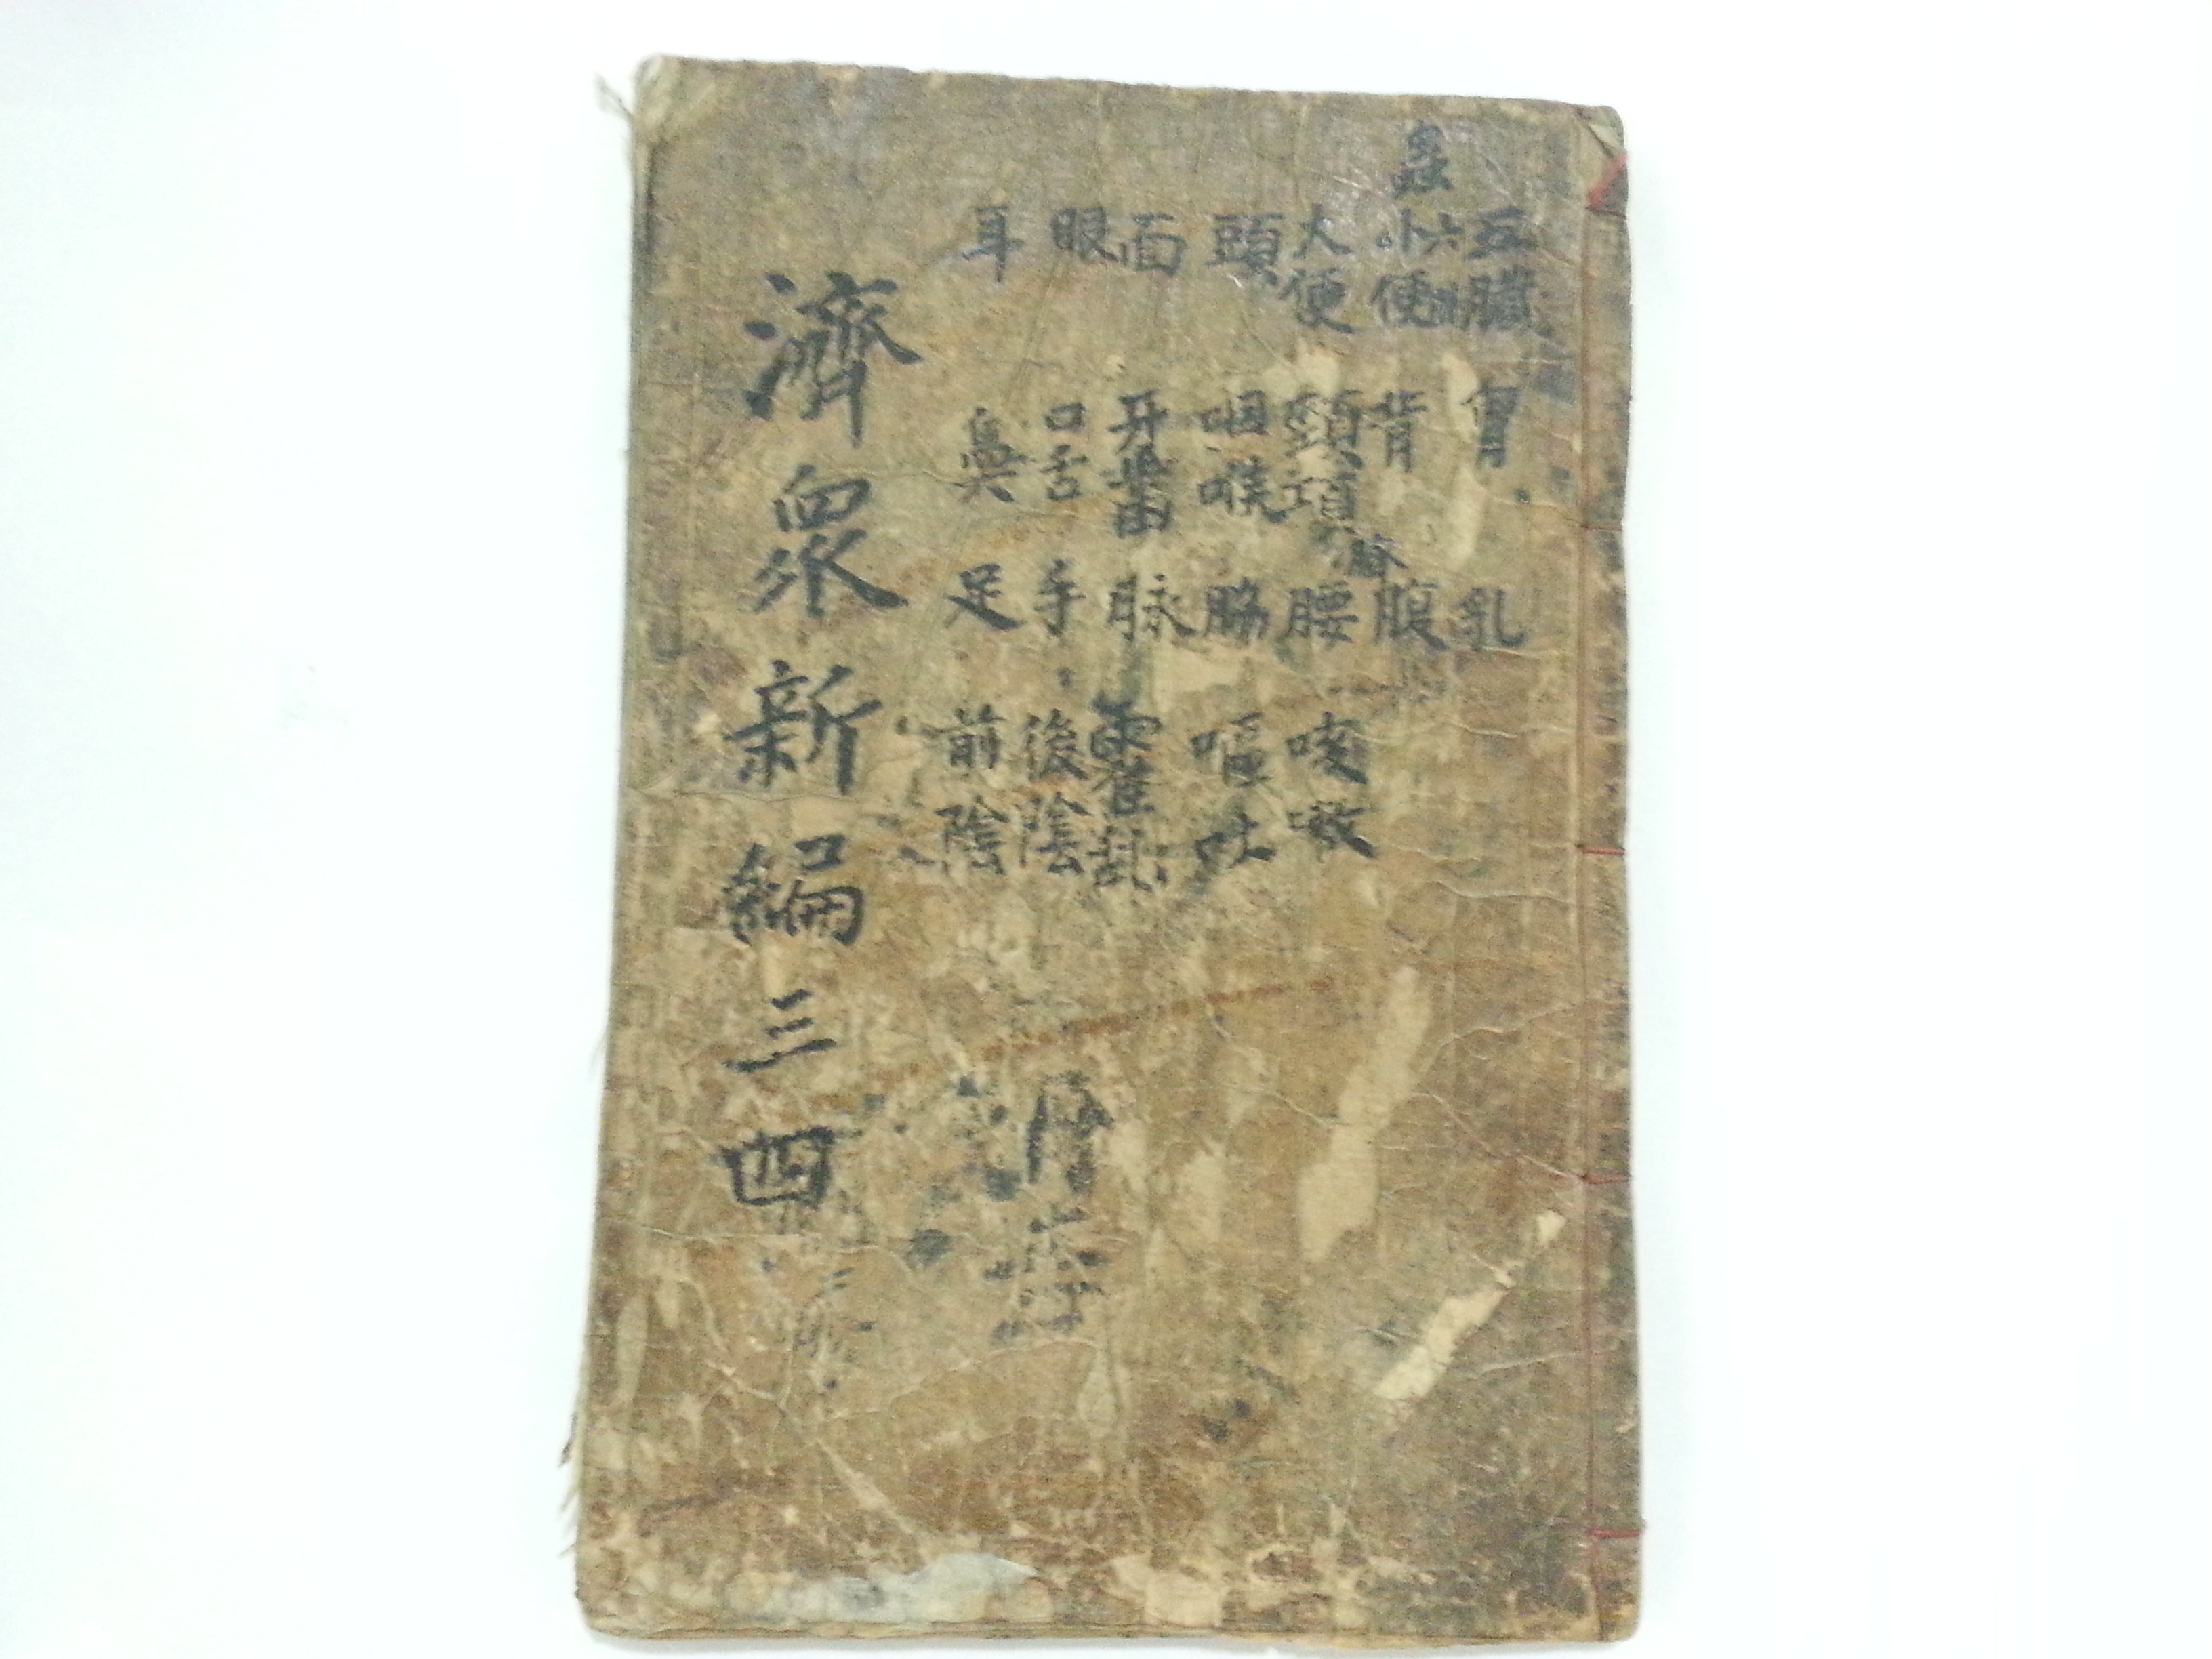 蟲
五臟 六腑
小便
大便
頭
面
眼
耳
胷
背
頸項
咽喉
牙齒
口舌
鼻
乳
腹 臍
腰
脇
脉
手
足
咳嗽
嘔吐
霍乱
後陰
前陰
濟衆新編三四